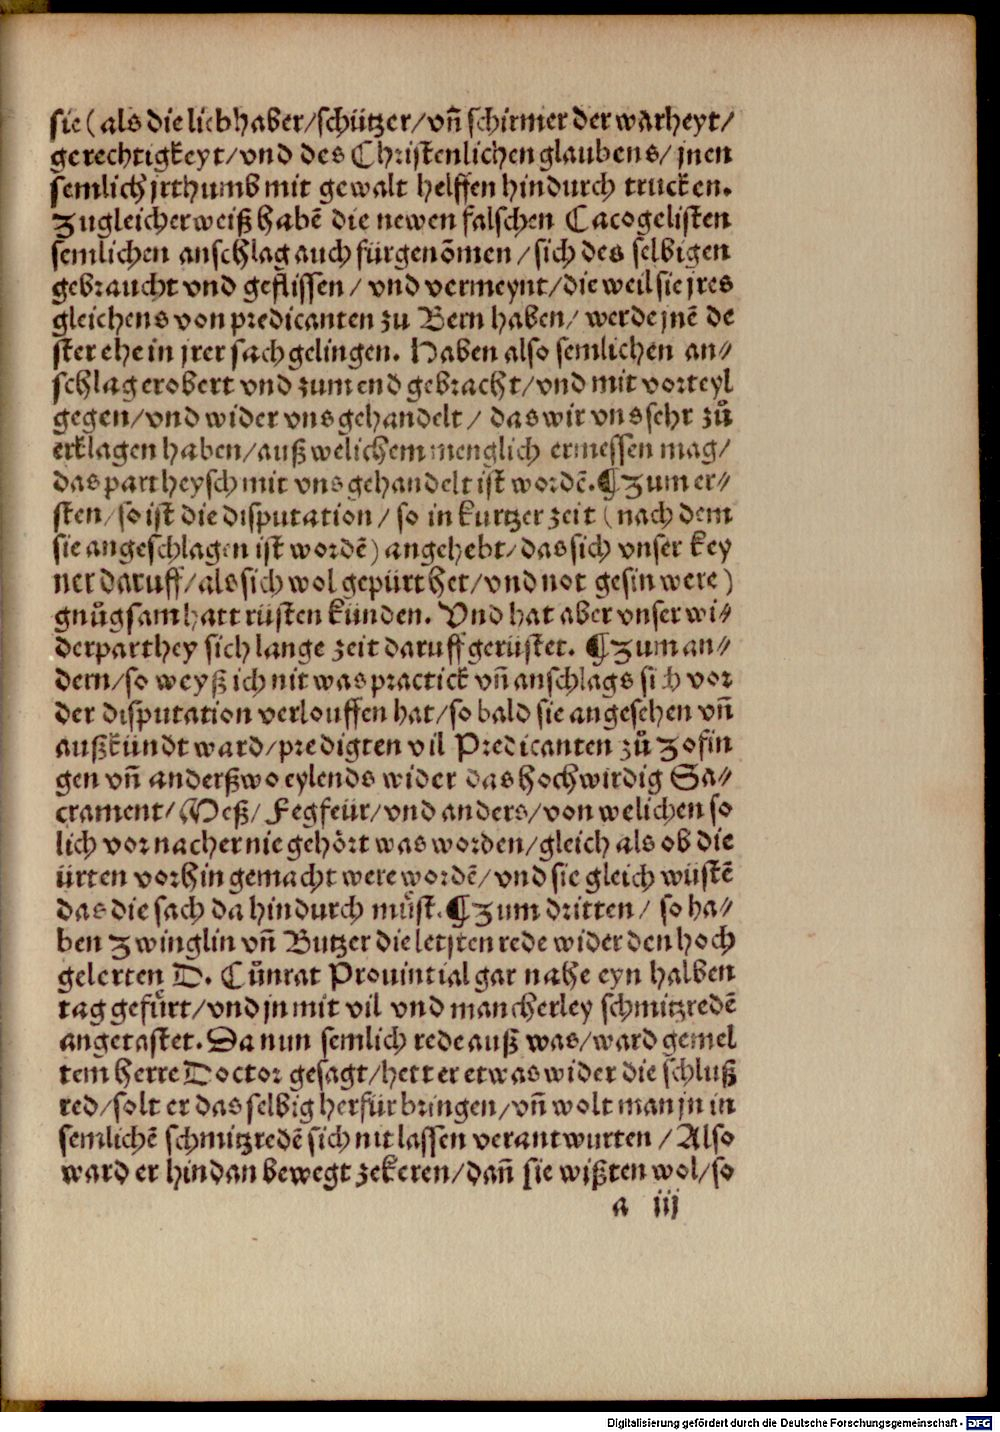 sie (als die liebhaber/schützer/vñ schirmer der warheyt/
gerechtigkeyt/vnd des Christenlichen glaubens/ jnen
semlich jrthumb mit gewalt helffen hindurch trucken.
Zugleicher weiß habẽ die newen falschen Cacogelisten
semlichen anschlag auch fürgenõmen/sich des selbigen
gebraucht vnd geflissen/ vnd vermeynt/die weil sie jres
gleichens von predicanten zu Bern haben/ werde jnẽ de
ster ehe in jrer sach gelingen. Haben also semlichen an⸗
schlag erobert vnd zum end gebracht/vnd mit vorteyl
gegen/vnd wider vns gehandelt/ das wir vns sehr zů
erklagen haben/auß welichem menglich ermessen mag/
das partheysch mit vns gehandelt ist wordẽ. ¶Zum er⸗
sten/so ist die disputation/ so in kurtzer zeit (nach dem
sie angeschlagen ist wordẽ) angehebt/das sich vnser key
ner daruff/als sich wol gepürt het/vnd not gesin were)
gnůgsam hatt rüsten künden. Vnd hat aber vnser wi⸗
derparthey sich lange zeit daruff gerüstet. ¶Zum an⸗
dern/so weyß ich nit was practick vñ anschlags sich vor
der disputation verlouffen hat/so bald sie angesehen vñ
außkündt ward/predigten vil Predicanten zů Zofin
gen vñ anderßwo eylends wider das hochwirdig Sa⸗
crament/Meß/ Fegfeür/vnd anders/von welichen so
lich vor nacher nie gehört was worden/gleich als ob die
ürten vorhin gemacht were wordẽ/vnd sie gleich wüstẽ
das die sach da hindurch müst. ¶Zum dritten/ so ha⸗
ben Zwinglin vñ Butzer die letsten rede wider den hoch
gelerten D. Cůnrat Prouintial gar nahe eyn halben
tag gefürt/vnd jn mit vil vnd mancherley schmitzredẽ
angetastet. Da nun semlich rede auß was/ward gemel
tem Herre Doctor gesagt/hett er etwas wider die schluß
red/solt er das selbig herfür bringen/vñ wolt man jn in
semlichẽ schmitzredẽ sich nit lassen verantwurten/Also
ward er hindan bewegt zekeren/dañ sie wißten wol/so
a iij
Digitalisierung gefördert durch die Deutsche Forschungsgemeinschaft - DFG